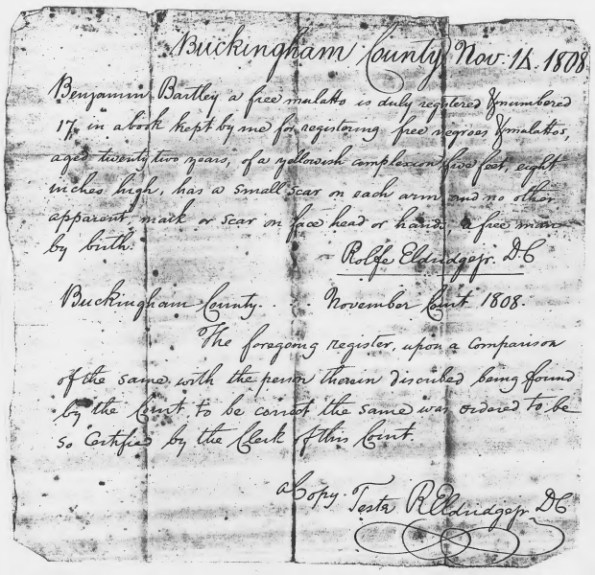 Buckingham County Nov. 14. 1808
Benjamin Bartley a free mulatto is duly registered & numbered
17, in a book kept by me for registering free negroes & mulattos,
aged twenty two years, of a yellowish complexion five feet, eight
inches high, has a small scar on each arm and no other
apparent, mark or scar on face head or hands, a free man
by birth.
Rolfe Eldridge jr. DC
Buckingham County. . . November Court 1808.
The foregoing register, upon a comparison
of the same, with the person therein discribed being found
by the Court, to be correct the same was ordered to be
so Certified by the Clerk of this Court.
a Copy. Teste R Eldridge jr DC